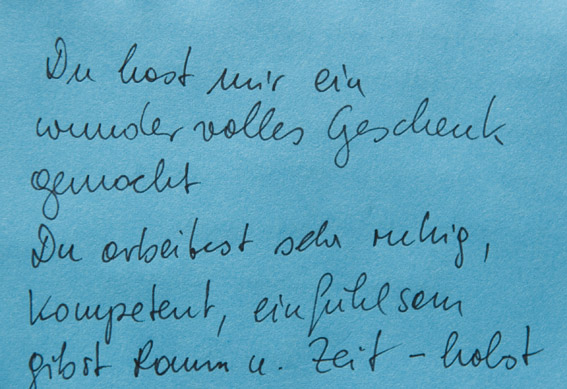 Du hast mir ein
wundervolles Geschenk
gemacht
Du arbeitest sehr ruhig,
kompetent, einfühlsam
gibst Raum u. Zeit – hälst